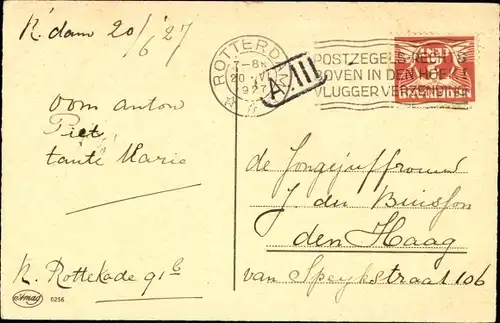 R'dam 20/6 '27
oom anton
Piet
tante Marie
N. Rottekade 91b
Amag 0256
ROTTERDAM
7-8N
20 VI
1927
A.III
POSTZEGELS RECHTS
BOVEN IN DEN HOEK!
VLUGGER VERZENDING
NEDERLAND
de Jongejuffrouw
J. du Buisson
den Haag
van Speykstraat 106